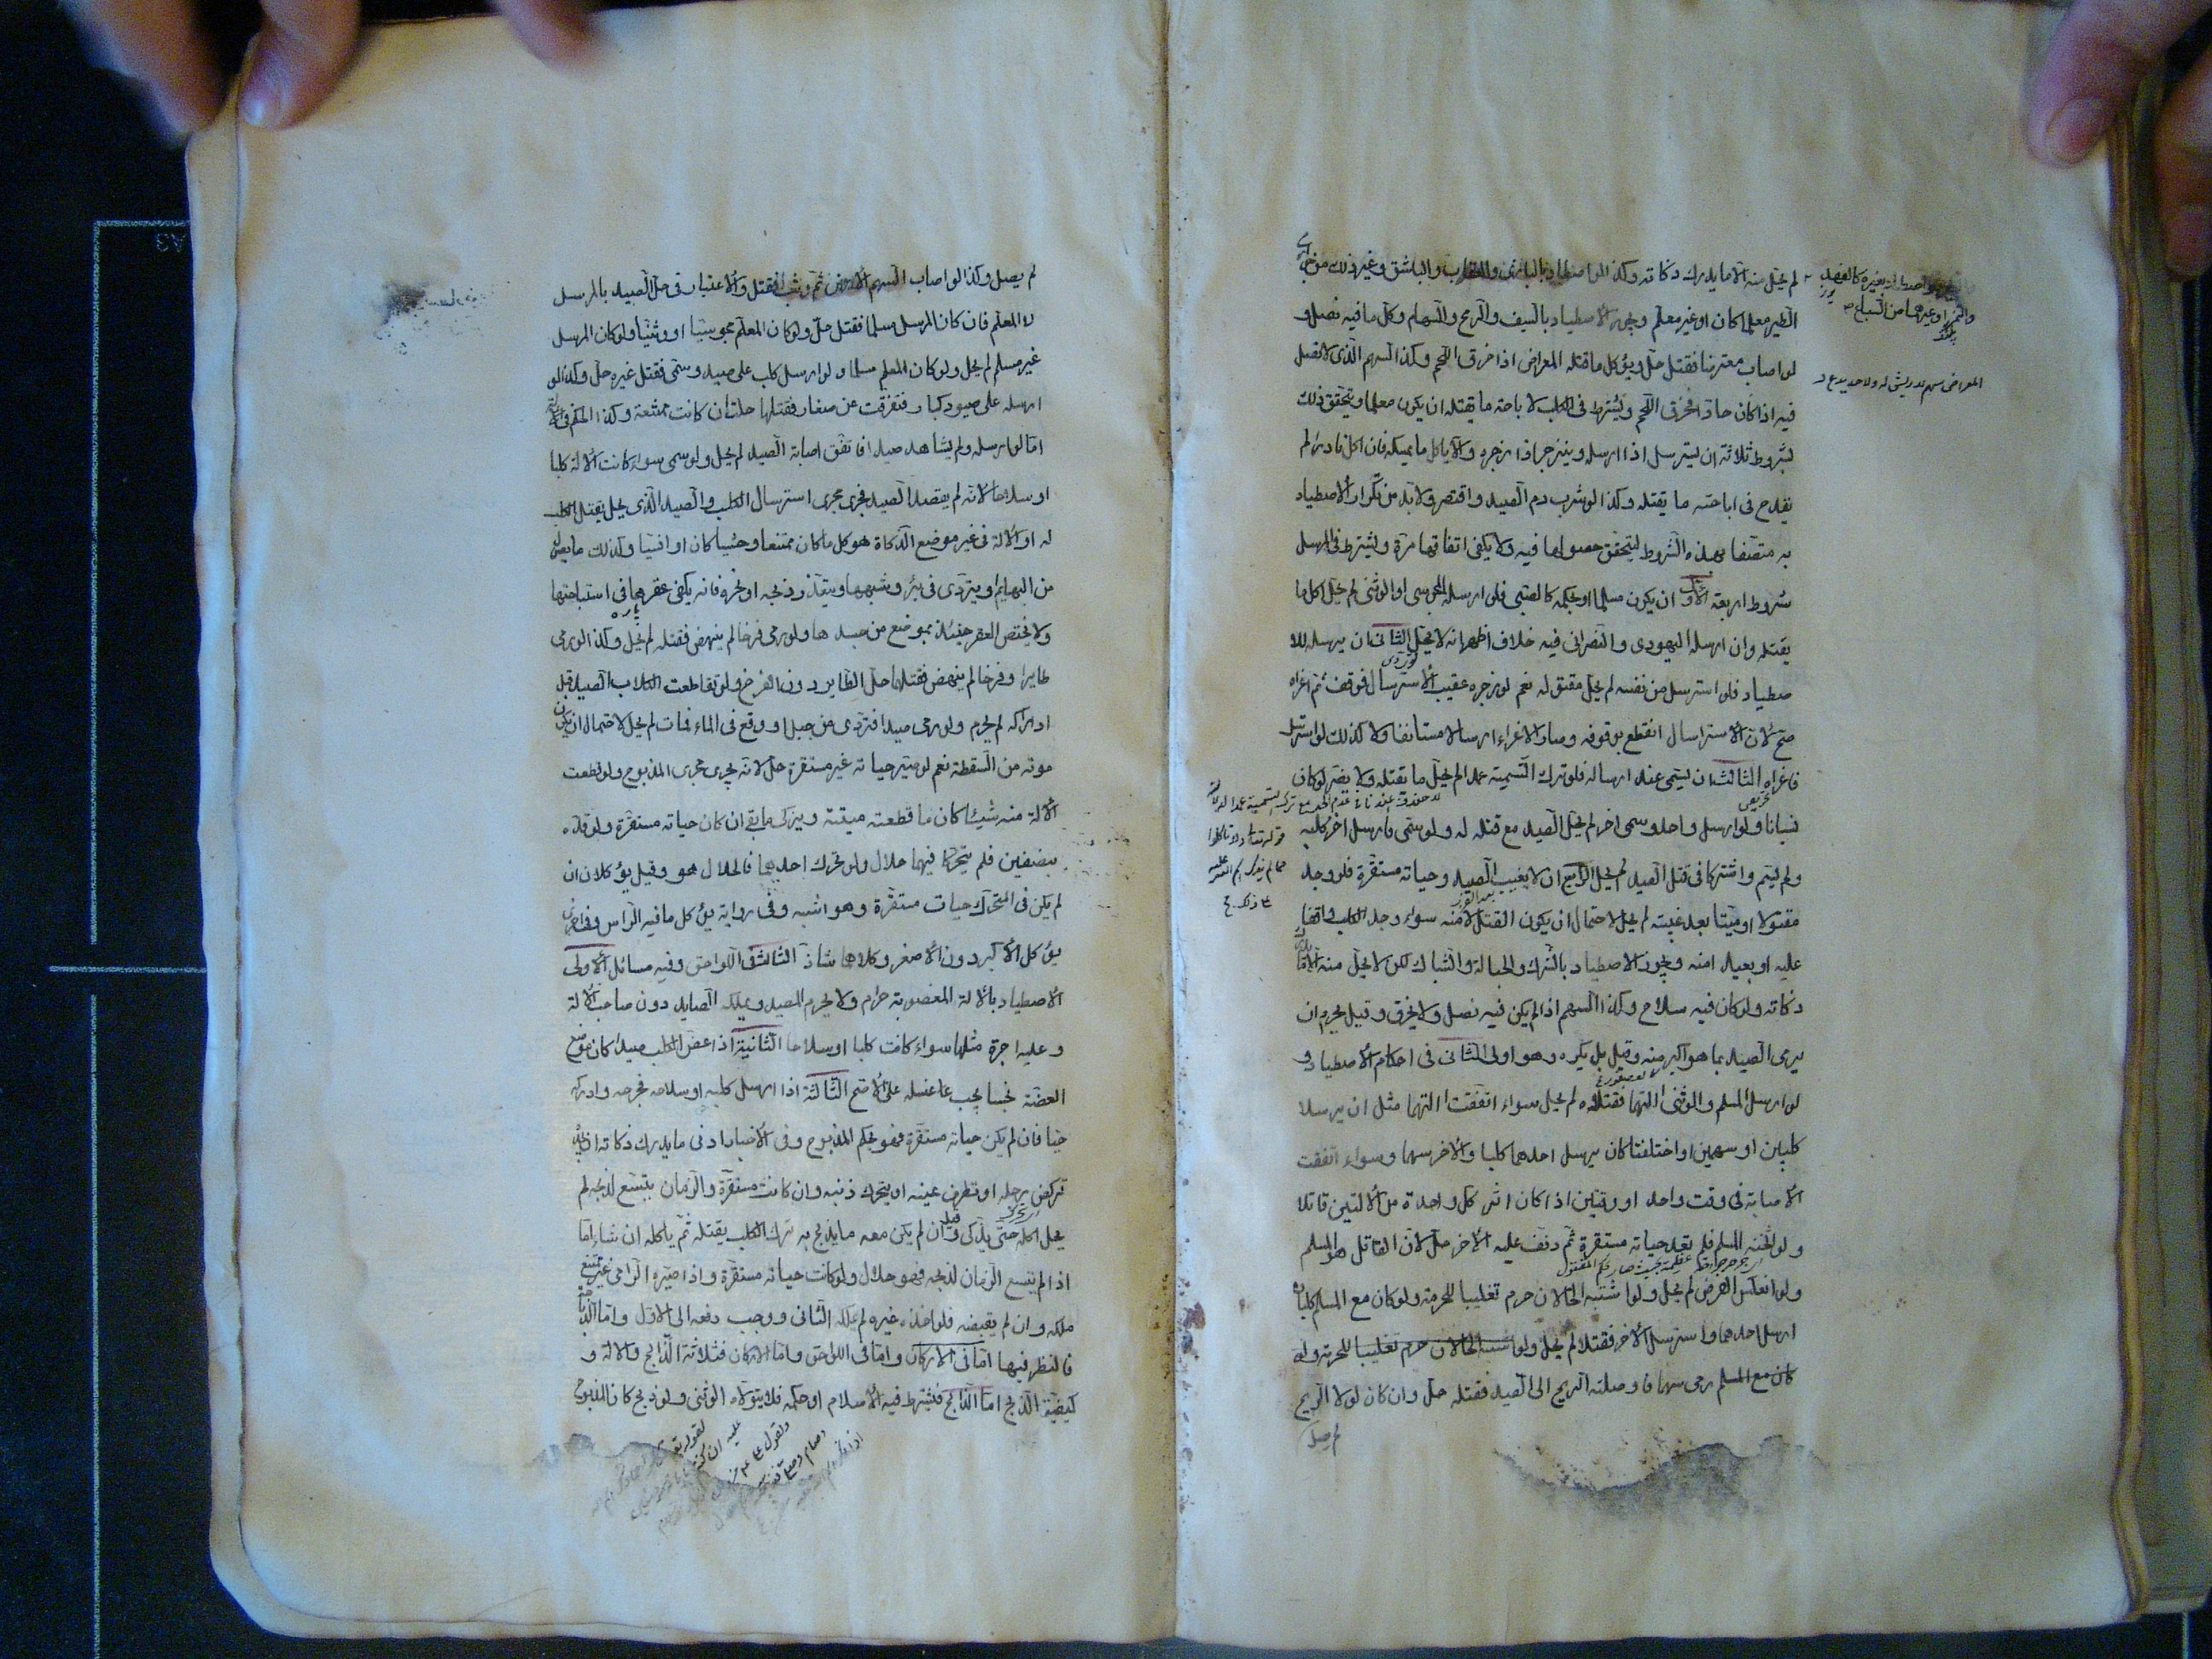 لم يحل منه الا ما يدرك ذكاته وكذا لو اصطاد بالبازى والعقاب والباشق وغير ذلك من جوارح
الطير معلما كان او غير معلم ويجوز الاصطياد بالسيف والرمح والسهام وكل ما فيه نصل و
لو اصاب معترضا فقتل حل ويؤكل ما قتله المعراض اذا خرق اللحم وكذا السهم الذى لا نصل
فيه اذا كان حادا فخرق اللحم ويشترط فى الكلب لاباحة ما يقتله ان يكون معلما ويتحقق ذلك
بشروط ثلاثة ان يسترسل اذا ارسله وينزجر اذا زجره والا ياكل ما يمسكه فان اكل نادرا لم
يقدح فى اباحة ما يقتله وكذا لو شرب دم الصيد واقتصر ولا بد من تكرار الاصطياد
به متصفا بهذه الشروط ليتحقق حصولها فيه ولا يكفى اتفاقها مرة ويشترط فى المرسل
شروط اربعة الاول ان يكون مسلما او بحكمه كالصبى فلو ارسله المجوسى او الوثنى لم يحل اكل ما
يقتله وان ارسله اليهودى والنصرانى فيه خلاف اظهره انه لا يحل الثانى ان يرسله للا
صطياد فلو استرسل من نفسه لم يحل مقتوله نعم لو زجره عقيب الاسترسال فوقف ثم اغراه
صح لان الاسترسال انقطع بوقوفه وصار الاغراء ارسالا مستانفا ولا كذلك لو استرسل
فاغراه الثالث ان يسمى عند ارساله فلو ترك التسمية عمدا لم يحل ما يقتله ولا يضر لو كان
نسيانا ولو ارسل واحد وسمى اخر لم يحل الصيد مع قتله له ولو سمى فارسل اخر كلبه
ولم يسم واشتركا فى قتل الصيد لم يحل الرابع ان لا يغيب الصيد وحياته مستقرة فلو وجد
مقتولا او ميتا بعد غيبته لم يحل لاحتمال ان يكون القتل لا منه سواء وجد الكلب واقفا
عليه او بعيدا منه ويجوز الاصطياد بالشرك والحبالة والشباك لكن لا يحل منه الا ما
ذكاته ولو كان فيه سلاح وكذا السهم اذا لم يكن فيه نصل ولا يخرق وقيل يحرم ان
يرمى الصيد بما هو اكبر منه وقيل بل يكره وهو اولى الثانى فى احكام الاصطياد و
لو ارسل المسلم والوثنى التهما فقتلاه لم يحل سواء اتفقت التهما مثل ان يرسلا
كلبين او سهمين او اختلفتا كان يرسل احدهما كلبا والاخر سهما وسواء اتفقت
الاصابة فى وقت واحد او وقتين اذا كان اثر كل واحدة من الالتين قاتلا
ولو اثخنه المسلم فلم تعد حياته مستقرة ثم دفف عليه الاخر حل لان القاتل هو المسلم
ولو انعكس الفرض لم يحل ولو اشتبه الحالان حرم تغليبا للحرمة ولو كان مع المسلم كلبان
ارسل احدهما واسترسل الاخر فقتلا لم يحل ولو اشتبه الحالان حرم تغليبا للحرمة ولو
كان مع المسلم رمى سهما فاوصلته الريح الى الصيد فقتله حل وان كان لولا الريح
لم يصل
المعراض سهم بلا ريش له ولا حديد
لم يصل وكذا لو اصاب السهم الارض ثم وثب فقتل والاعتبار فى حل الصيد بالمرسل
لا المعلم فان كان المرسل مسلما فقتل حل ولو كان المعلم مجوسيا او وثنيا ولو كان المرسل
غير مسلم لم يحل ولو كان المعلم مسلما ولو ارسل كلب على صيد وسمى فقتل غيره حل وكذا لو
ارسله على صيود كبار فتفرقت عن صغار فقتلها حلت ان كانت ممتنعة وكذا الحكم فى الالة
اما لو ارسله ولم يشاهد صيدا فاتفق اصابة الصيد لم يحل ولو سمى سواء كانت الالة كلبا
او سلاحا لانه لم يقصد الصيد فجرى مجرى استرسال الكلب والصيد الذى يحل بقتل الكلب
له او الالة فى غير موضع الذكاة هو كل ما كان ممتنعا وحشيا كان او انسيا وكذلك ما يصول
من البهايم او يتردى فى بئر وشبهها ويتعذر ذبحه او نحره فانه يكفى عقرها فى استباحتها
ولا يختص العقر حينئذ بموضع من جسدها ولو رمى فرخا لم ينهض فقتله لم يحل وكذا لو رمى
طايرا وفرخا لم ينهض فقتلهما حل الطاير دون الفرخ ولو تقاطعت الكلاب الصيد قبل
ادراكه لم يحرم ولو رمى صيدا فتردى من جبل او وقع فى الماء فمات لم يحل لاحتمال ان يكون
موته من السقطة نعم لو صير حياته غير مستقرة حل لانه يجرى مجرى المذبوح ولو قطعت
الالة منه شيئا كان ما قطعته ميتة ويزكى ما بقى ان كان حياته مستقرة ولو قده
بنصفين فلم يتحركا فهما حلال ولو تحرك احدهما فالحلال هو وقيل يؤكلان ان
لم يكن فى المتحرك حيات مستقرة وهو اشبه وفى رواية يؤكل ما فيه الراس وفى اخرى
يؤكل الاكبر دون الاصغر وكلاهما شاذ الثالث فى اللواحق وفيه مسائل الاولى
الاصطياد بالالة المغصوبة حرام ولا يحرم الصيد ويملكه الصايد دون صاحب الالة
وعليه اجرة مثلها سواء كانت كلبا او سلاحا الثانية اذا عض الكلب صيدا كان موضع
العضة نجسا يجب غسله على الاصح الثالثة اذا ارسل كلبه او سلاحه فجرحه وادركه
حيا فان لم يكن حياته مستقرة فهو بحكم المذبوح وفى الاخبار ادنى ما يدرك ذكاته ان يجده
تركض رجله او تطرف عينه او يتحرك ذنبه وان كانت مستقرة والزمان يتسع لذبحه لم
يحل اكله حتى يذكى وقيل ان لم يكن معه ما يذبح به ترك الكلب يقتله ثم ياكله ان شاء اما
اذا لم يتسع الزمان لذبحه فهو حلال ولو كانت حياته مستقرة واذا صيره الرامى غير ممتنع
ملكه وان لم يقبضه فلو اخذه غيره لم يملكه الثانى ووجب دفعه الى الاول واما الذباحة
فالنظر فيها اما فى الاركان واما فى اللواحق واما الاركان فثلاثة الذابح والالة و
كيفية الذبح اما الذابح فيشترط فيه الاسلام او حكمه فلا يتولاه الوثنى ولو ذبح كان المذبوح